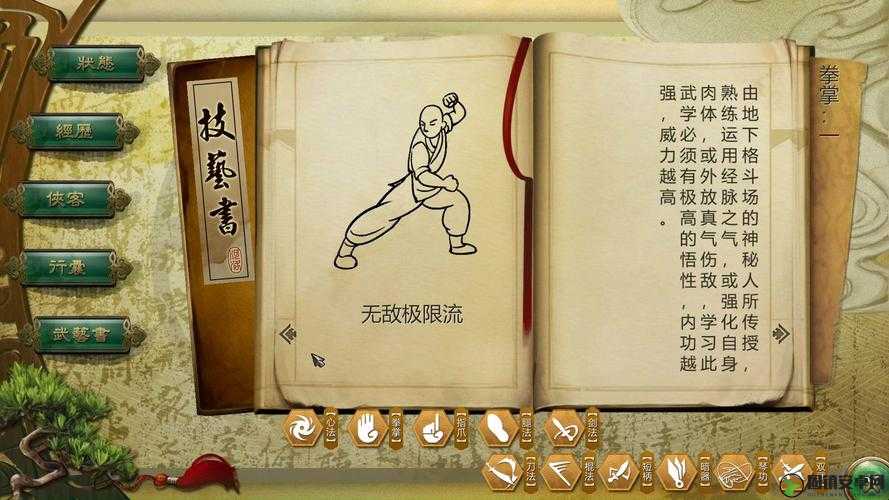 狀態
經歷
俠客
行囊
武藝書
技藝書
无敌极限流
拳掌：一
由地下格斗场的神秘人所传授，
熟练运用经脉之气，或强化自身
肉体，或外放真气伤敌，学习此
武学必须有极高的悟性，内功越
强，威力越高。
【心法】
【拳掌】
【指爪】
【腿法】
【剑法】
【刀法】
【棍法】
【短柄】
【暗器】
【琴功】
【双